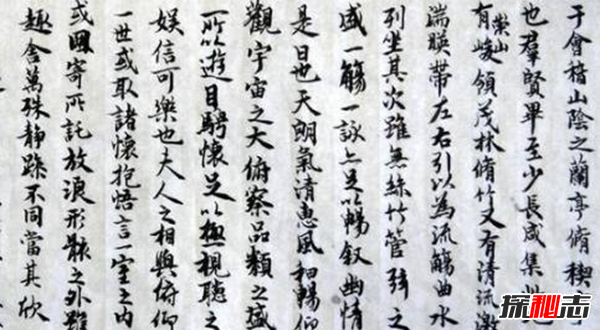 于會稽山陰之蘭亭脩禊
也羣賢畢至少長咸集此
有崇山峻領茂林脩竹又有清流激
湍暎帶左右引以為流觴曲水
列坐其次雖無絲竹管弦之
盛一觴一詠亦足以暢叙幽情
是日也天朗氣清惠風和暢仰
觀宇宙之大俯察品類之盛
所以遊目騁懷足以極視聽之
娛信可樂也夫人之相與俯仰
一世或取諸懷抱悟言一室之内
或因寄所託放浪形骸之外雖
趣舍萬殊静躁不同當其欣
探秘志